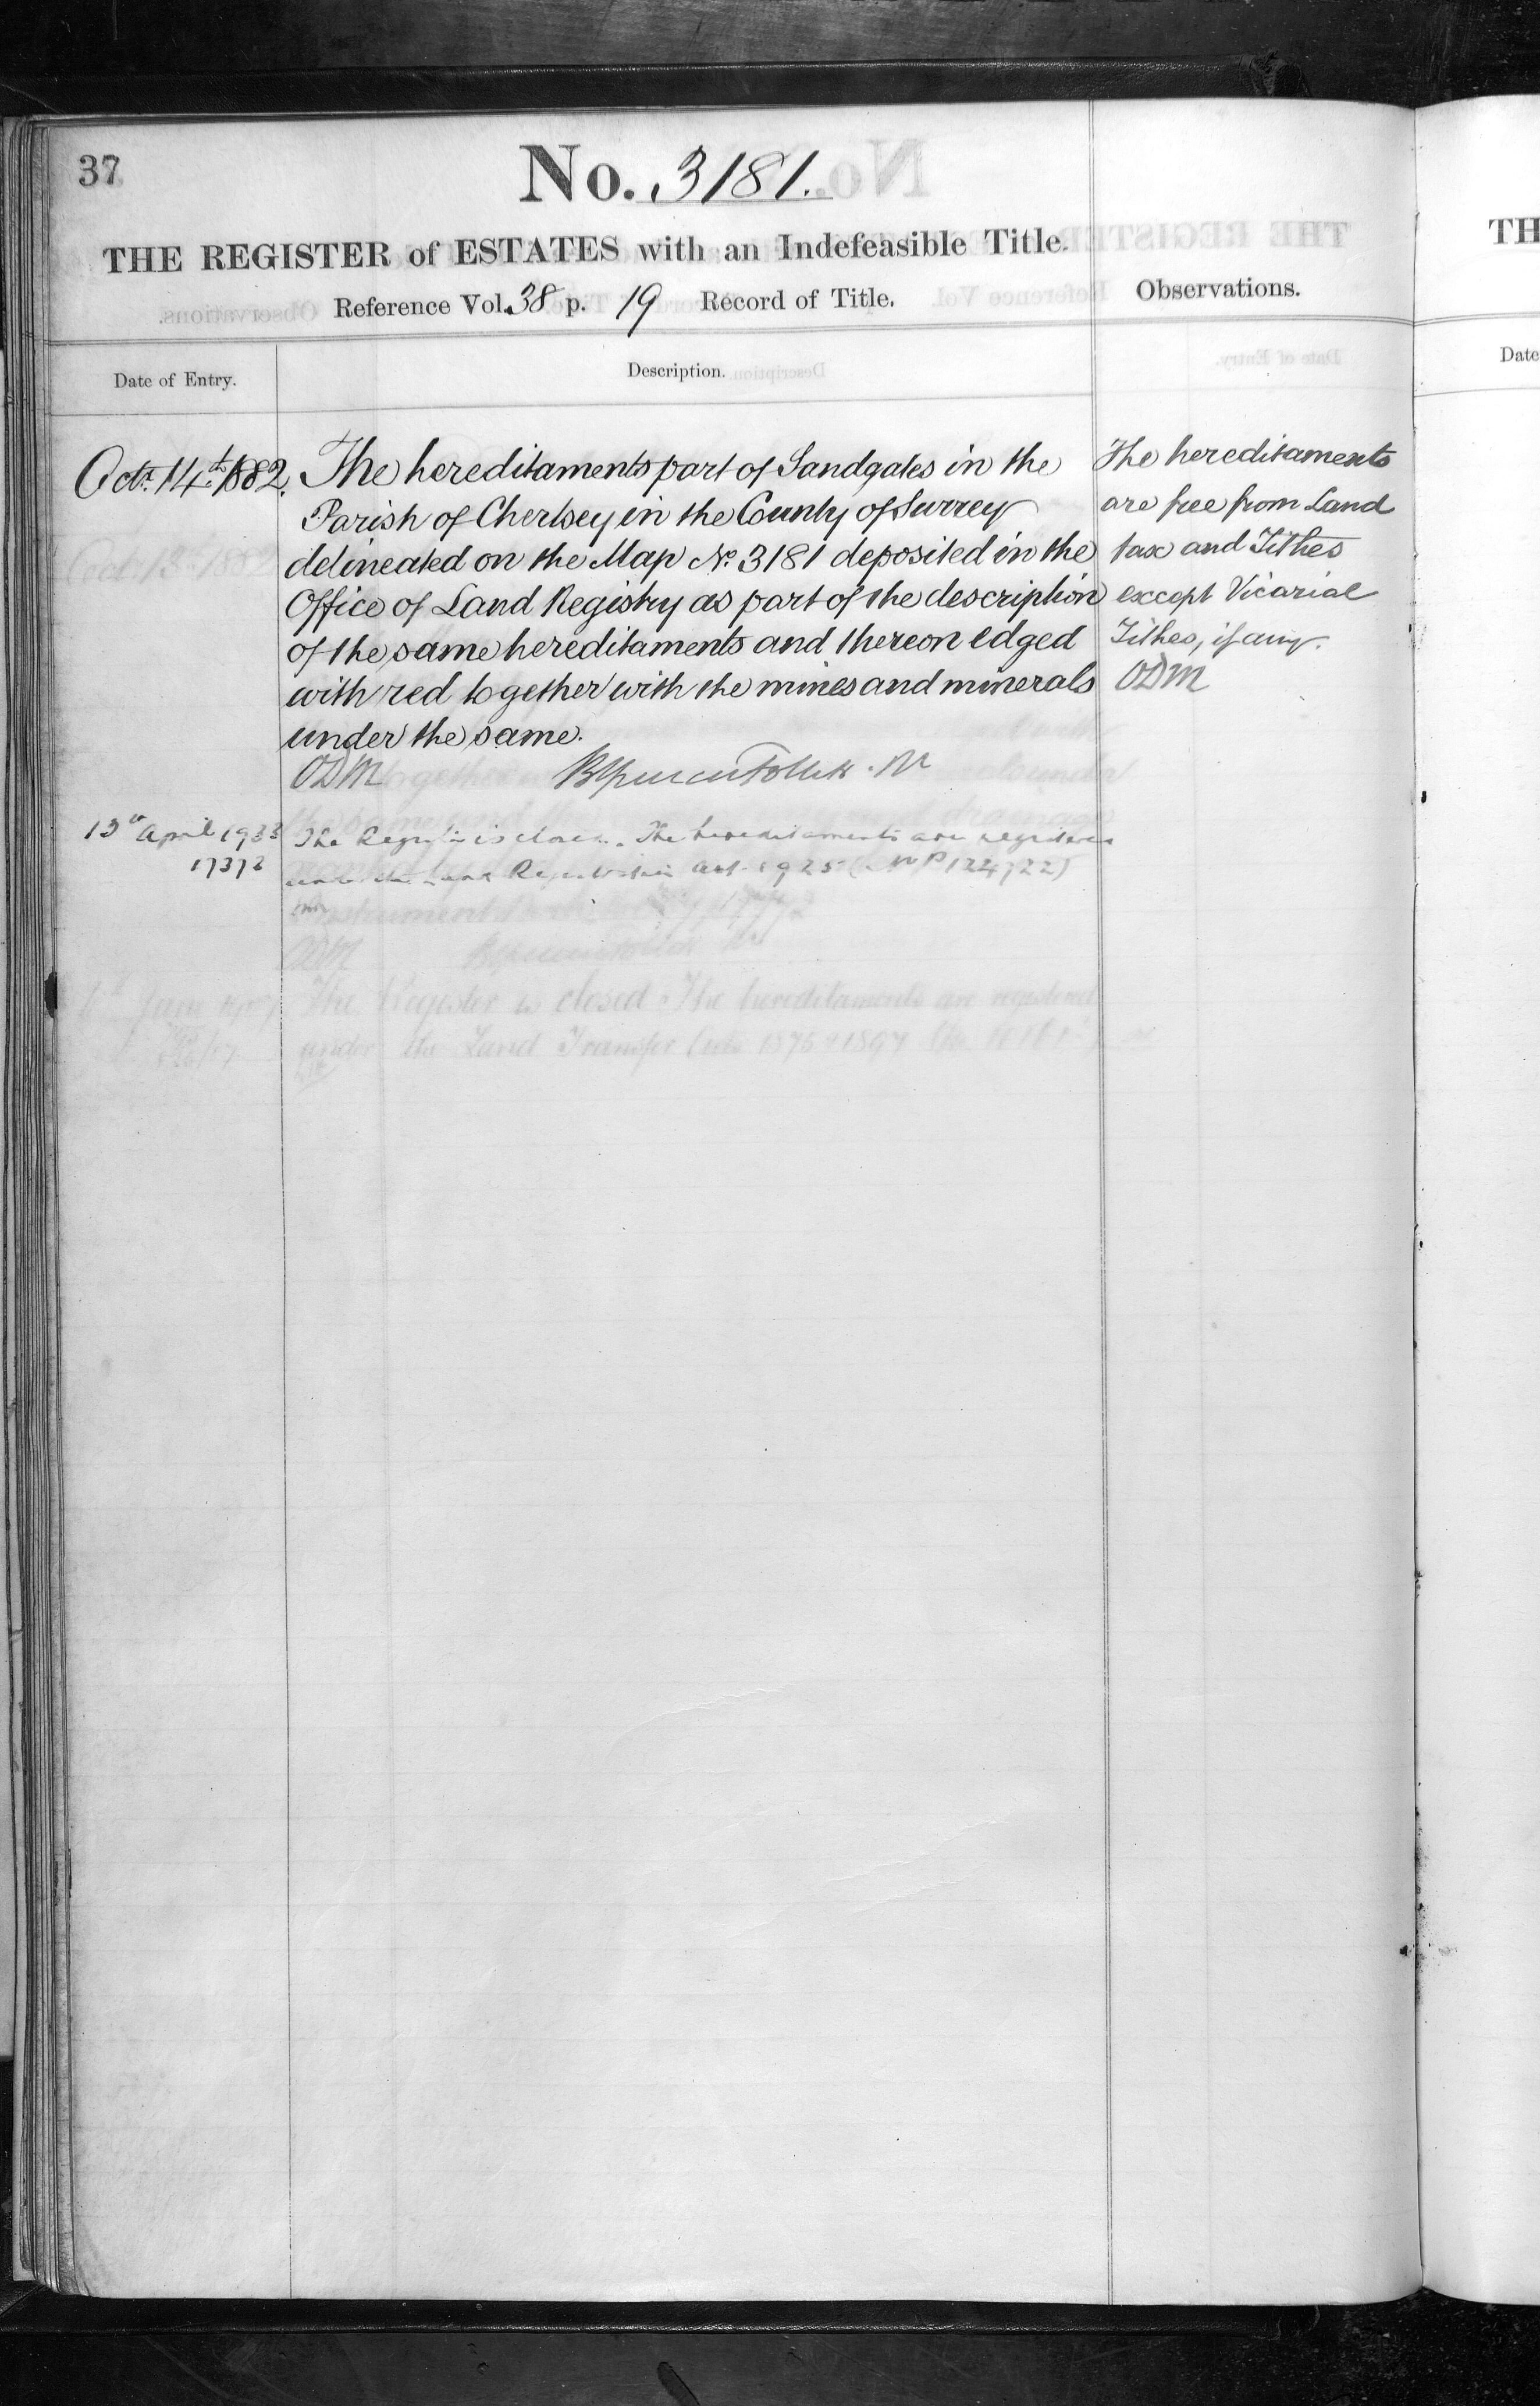 37
No. 3181.
THE REGISTER of ESTATES with an Indefeasible Title.
Reference Vol. 38 p. 19 Record of Title.
Observations.
Date of Entry.
Description.
Octr. 14th 1882.
The hereditaments part of Sandgates in the
Parish of Chertsey in the County of Surrey
delineated on the Map No. 3181 deposited in the
Office of Land Registry as part of the description
of the same hereditaments and thereon edged
with red together with the mines and minerals
under the same.
ODM
The hereditaments
are free from Land
tax and Tithes
except Vicarial
Tithes, if any.
ODM
13th April 1933
The Register is closed. The hereditaments are registered
under the Land Registration Act 1925 (No P124722)
The Register is closed. The hereditaments are registered
under the Land Transfer Acts 1875 & 1897
TH
Date